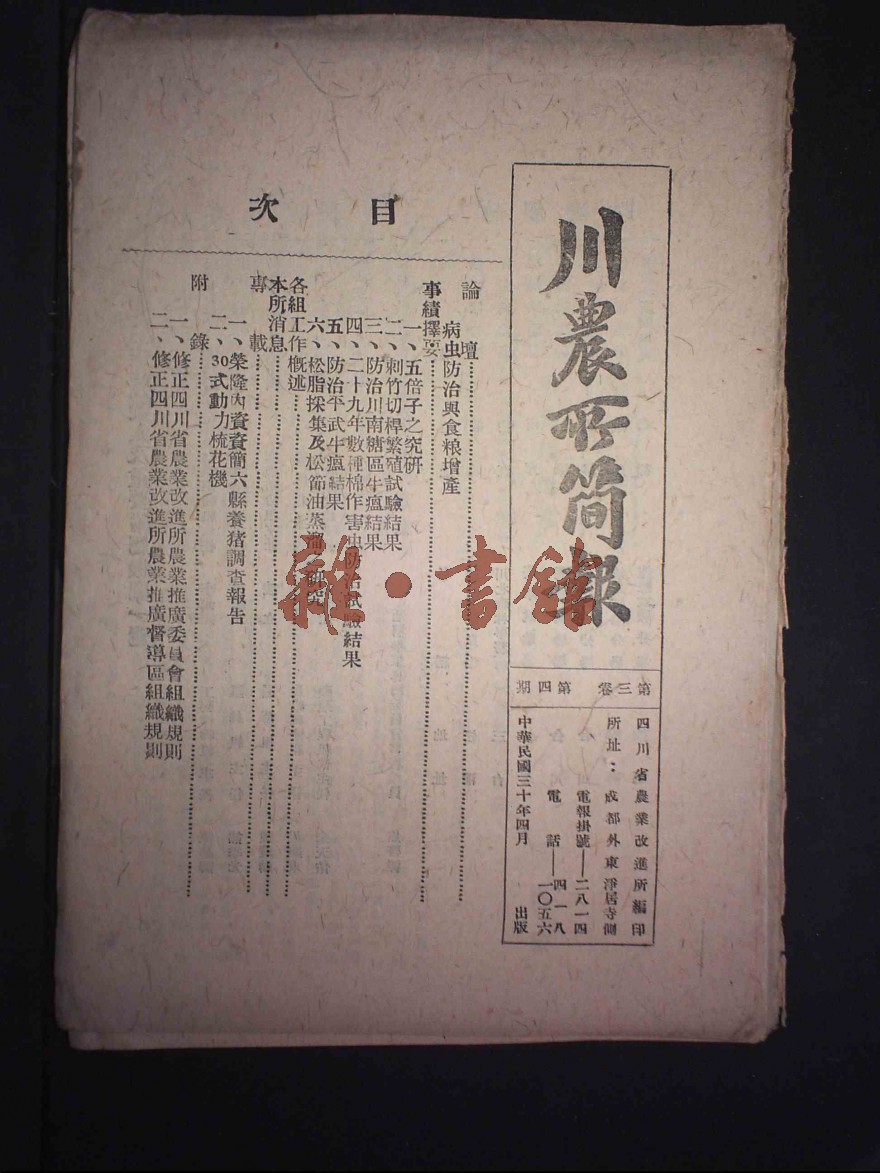 川農所簡報
第三卷 第四期
四川省農業改進所編印
所址：成都外東淨居寺側
電報掛號——二八一四
電話——四一八
一〇五六
中華民國三十年四月 出版
目次
論壇
病虫防治與食粮增產
事績擇要
一、五倍子之究研
二、刺竹切桿繁殖試驗結果
三、防治川南糖區牛瘟結果
四、二十九年數種棉作害虫防治試驗結果
五、防治平武牛瘟結果
六、松脂採集及松節油蒸溜研究
各組工作概述
本所消息
專載
一、榮隆內資資簡六縣養猪調查報告
二、30式動力梳花機
附錄
一、修正四川省農業改進所農業推廣委員會組織規則
二、修正四川省農業改進所農業推廣督導區組織規則
雜·書館